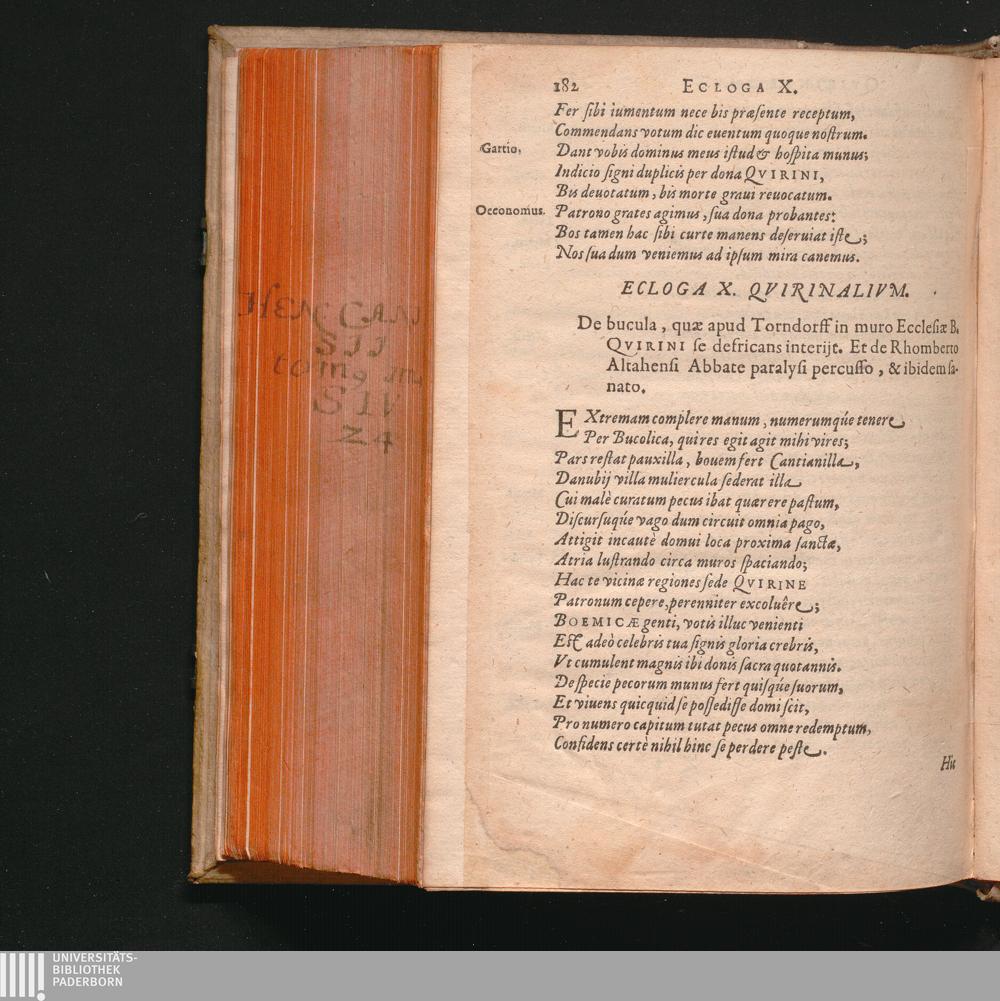 182 ECLOGA X.
Fer sibi iumentum nece bis præsente receptum,
Commendans votum dic euentum quoque nostrum.
Gartio, Dant vobis dominus meus istud & hospita munus;
Indicio signi duplicis per dona QVIRINI,
Bis deuotatum, bis morte graui reuocatum.
Oeconomus. Patrono grates agimus, sua dona probantes:
Bos tamen hac sibi curte manens deseruiat iste;
Nos sua dum veniemus ad ipsum mira canemus.
ECLOGA X. QVIRINALIVM.
De bucula, quæ apud Torndorff in muro Ecclesiæ B.
QVIRINI se defricans interijt. Et de Rhomberto
Altahensi Abbate paralysi percusso, & ibidem sa-
nato.
EXtremam complere manum, numerumqúe tenere
Per Bucolica, qui res egit agit mihi vires;
Pars restat pauxilla, bouem fert Cantianilla,
Danubij villa muliercula sederat illa
Cui malè curatum pecus ibat quærere pastum,
Discursuqúe vago dum circuit omnia pago,
Attigit incautè domui loca proxima sanctæ,
Atria lustrando circa muros spaciando;
Hac te vicinæ regiones sede QVIRINE
Patronum cepere, perenniter excoluêre;
BOEMICÆ genti, votis illuc venienti
Est adeò celebris tua signis gloria crebris,
Vt cumulent magnis ibi donis sacra quotannis.
De specie pecorum munus fert quisqúe suorum,
Et viuens quicquid se possedisse domi scit,
Pro numero capitum tutat pecus omne redemptum,
Confidens certè nihil hinc se perdere peste.
Hic
HEN CANI
SII
tomg
SIV
24
UNIVERSITÄTS-
BIBLIOTHEK
PADERBORN